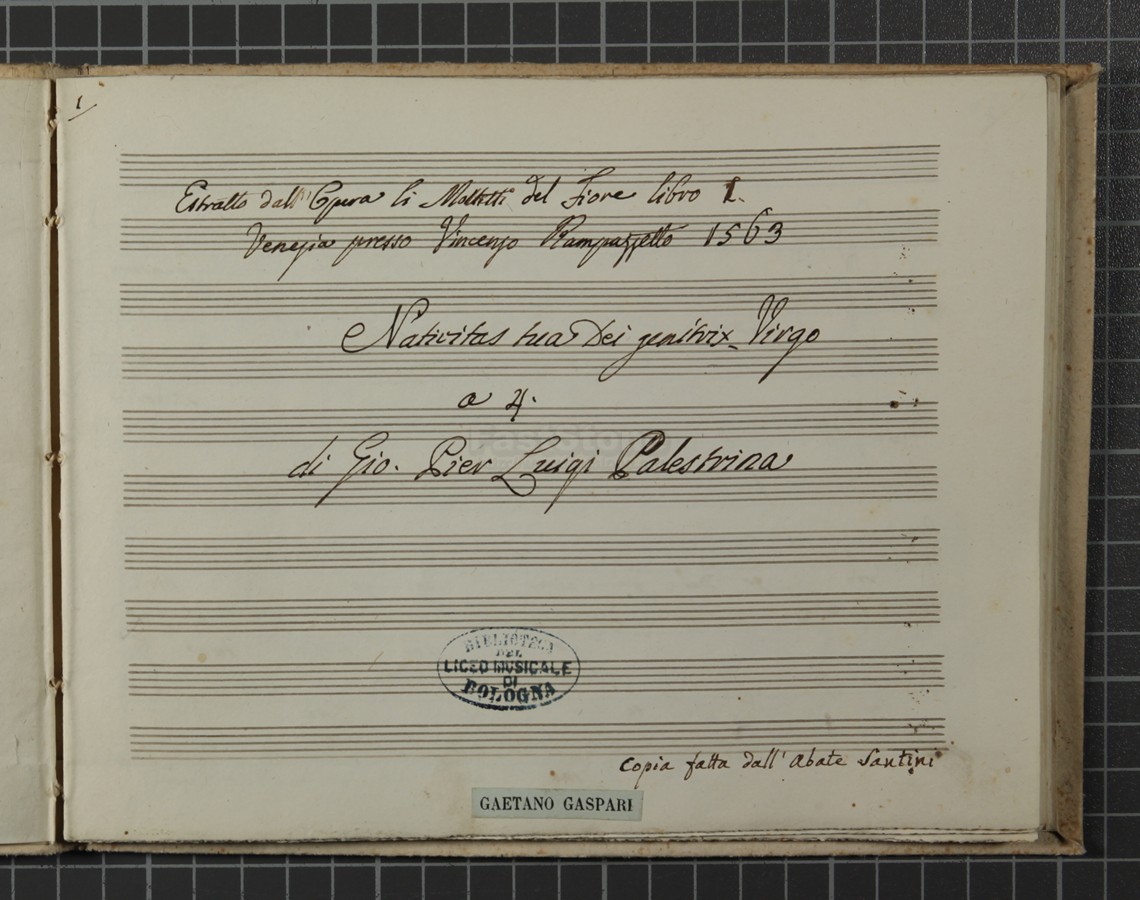 1
Estratto dall'Opera li Mottetti del Fiore libro 1.
Venezia presso Vincenzo Rampazzetto 1563
Nativitas tua Dei genitrix Virgo
a 4.
di Gio. Pier Luigi Palestrina
BIBLIOTECA
DEL
LICEO MUSICALE
DI
BOLOGNA
Copia fatta dall'Abate Santini
GAETANO GASPARI